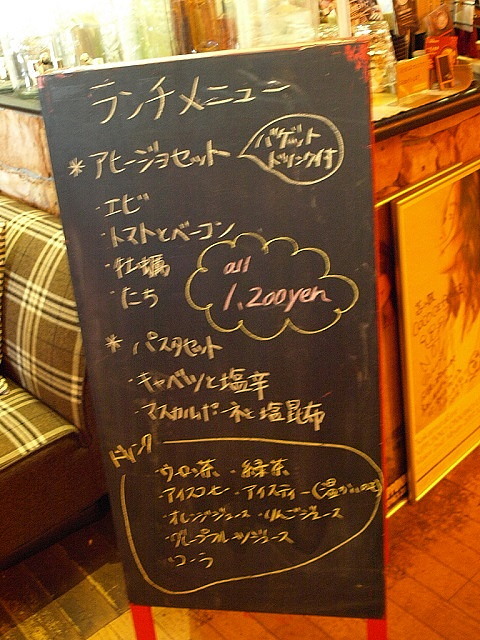 ランチメニュー
*アヒージョセット
バゲット
ドリンク付
・エビ
・トマトとベーコン
・牡蠣
・たち
all
1,200yen
*パスタセット
・キャベツと塩辛
・マスカルポーネと塩昆布
ドリンク
・ウーロン茶 ・緑茶
・アイスコーヒー ・アイスティー(温かいのも)
・オレンジジュース ・りんごジュース
・グレープフルーツジュース
・コーラ